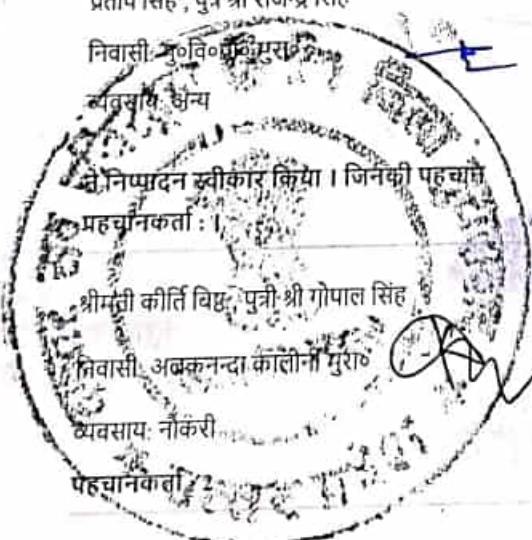 प्रताप सिंह , पुत्र श्री राजेन्द्र सिंह
निवासी: मु०वि०प्रा० मुरा०
व्यवसाय: अन्य
ने निष्पादन स्वीकार किया । जिनकी पहचान
पहचानकर्ता : 1
श्रीमती कीर्ति बिष्ट , पुत्री श्री गोपाल सिंह
निवासी: अलकनन्दा कालोनी मुरा०
व्यवसाय: नौकरी
पहचानकर्ता : 2